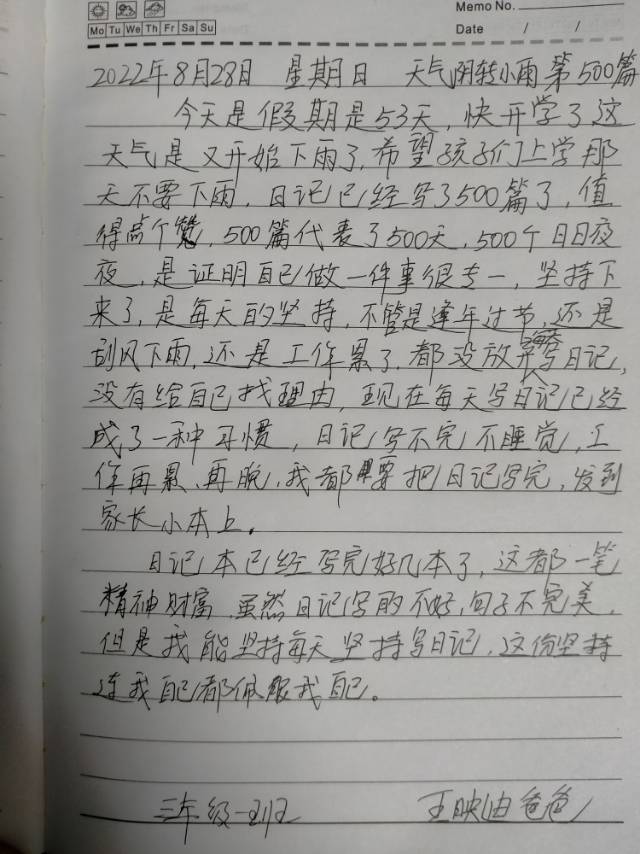 Memo No.
Mo Tu We Th Fr Sa Su
Date / /
2022年8月28日 星期日 天气阴转小雨 第500篇
今天是假期是53天，快开学了这
天气是又开始下雨了，希望孩子们上学那
天不要下雨，日记已经写了500篇了，值
得点个赞，500篇代表了500天，500个日日夜
夜，是证明自己做一件事很专一，坚持下
来了，是每天的坚持，不管是逢年过节，还是
刮风下雨，还是工作累了，都没放弃写日记，
没有给自己找理由，现在每天写日记已经
成了一种习惯，日记写不完不睡觉，工
作再累、再晚，我都要把日记写完，发到
家长小本上。
日记本已经写完好几本了，这都一笔
精神财富，虽然日记写的不好，句子不完美，
但是我能坚持每天坚持写日记，这份坚持
连我自己都佩服我自己。
三年级一班 王映迪爸爸